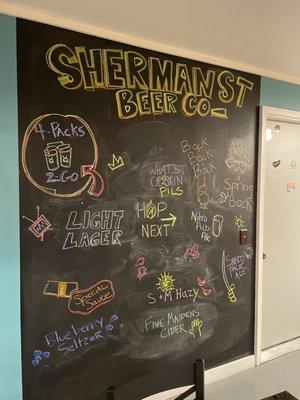 SHERMAN ST
BEER CO
4-PACKS
2-GO
BOCK
BOCK
BOCK
WHAT'S
COOKIN
PILS
SPRING
BOCK
LIGHT
LAGER
HOP
NEXT
NITRO
PUB
ALE
SPECIAL
SAUCE
S+M HAZY
BLUEBERRY
SELTZER
FIVE MAIDENS
CIDER
PALE
ALE